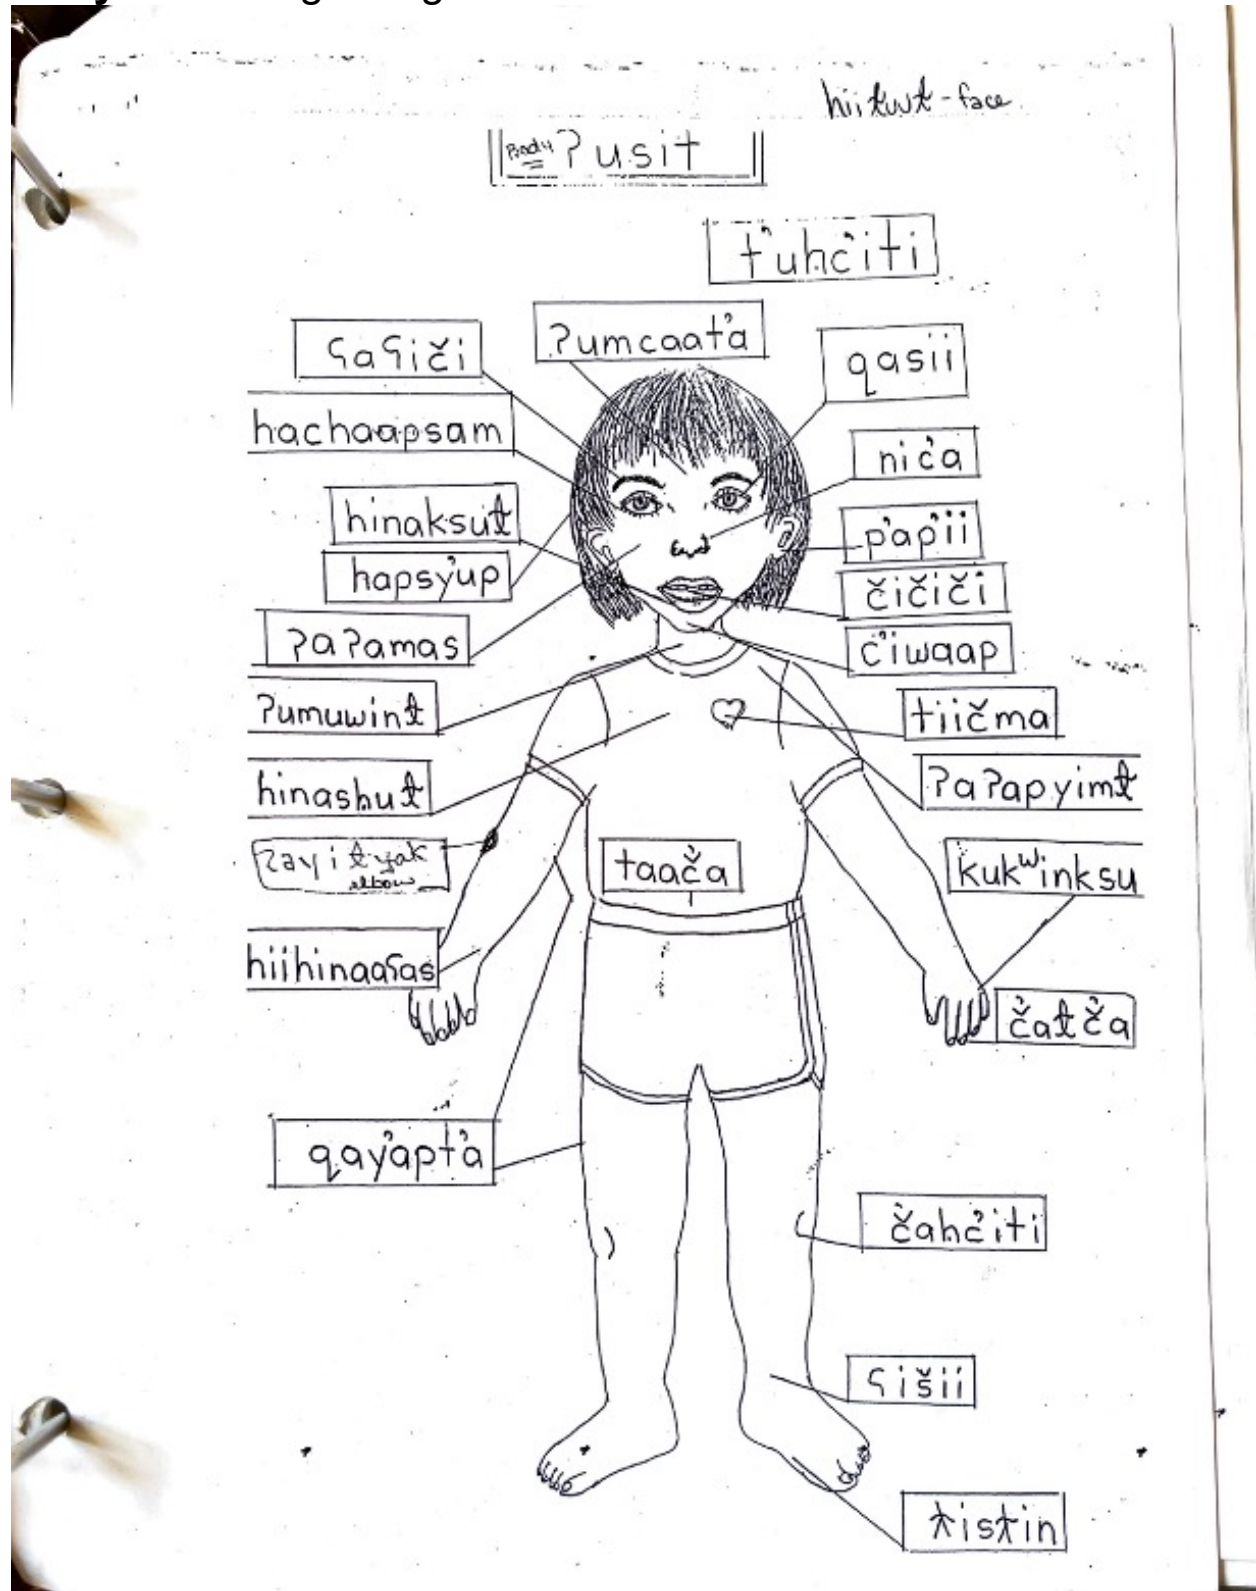 hiiƛuuƛ - face
Body ʔusit
t̓uhc̓iti
ʔumcaat̓a
ʕaʕiči
qasii
hachaapsam
nic̓a
hinaksuƛ
p̓ap̓ii
hapsy̓up
čičiči
ʔaʔamas
c̓iwaap
ʔumuwinƛ
tiičma
hinashuƛ
ʔaʔapyimƛ
elbow
taač̓a
kukʷinksu
hiihinaaʕas
č̓aƛč̓a
qay̓apt̓a
čahc̓iti
ʕišii
ƛisƛin